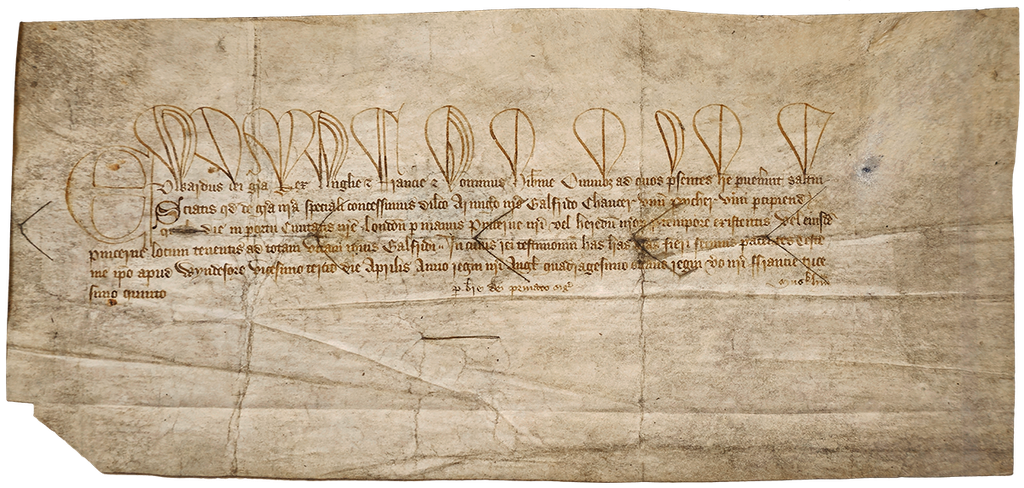 Edwardus dei gra Rex Anglie & Francie & Dominus Hibnie Omnibz ad quos psentes lre puenint saltm
Sciatis qd de gra nra speciali concessimus dilco Armigo nro Galfrido Chaucer vnu Pycher vini pcipiend
die in portu Civitatis nre London p manus Pincerne nri vel heredu nror tempore existentis vel eiusd
Pincerne locum tenentis ad totam vitam ipius Galfridi In cuius rei testimoniu has lras fieri fecimus patentes Teste
me ipo apud Wyndesore vicesimo tercio die Aprilis Anno regni nri Angl quadragesimo octauo regni vo nri ffrancie trice
simo quinto
p bre de priuato sig